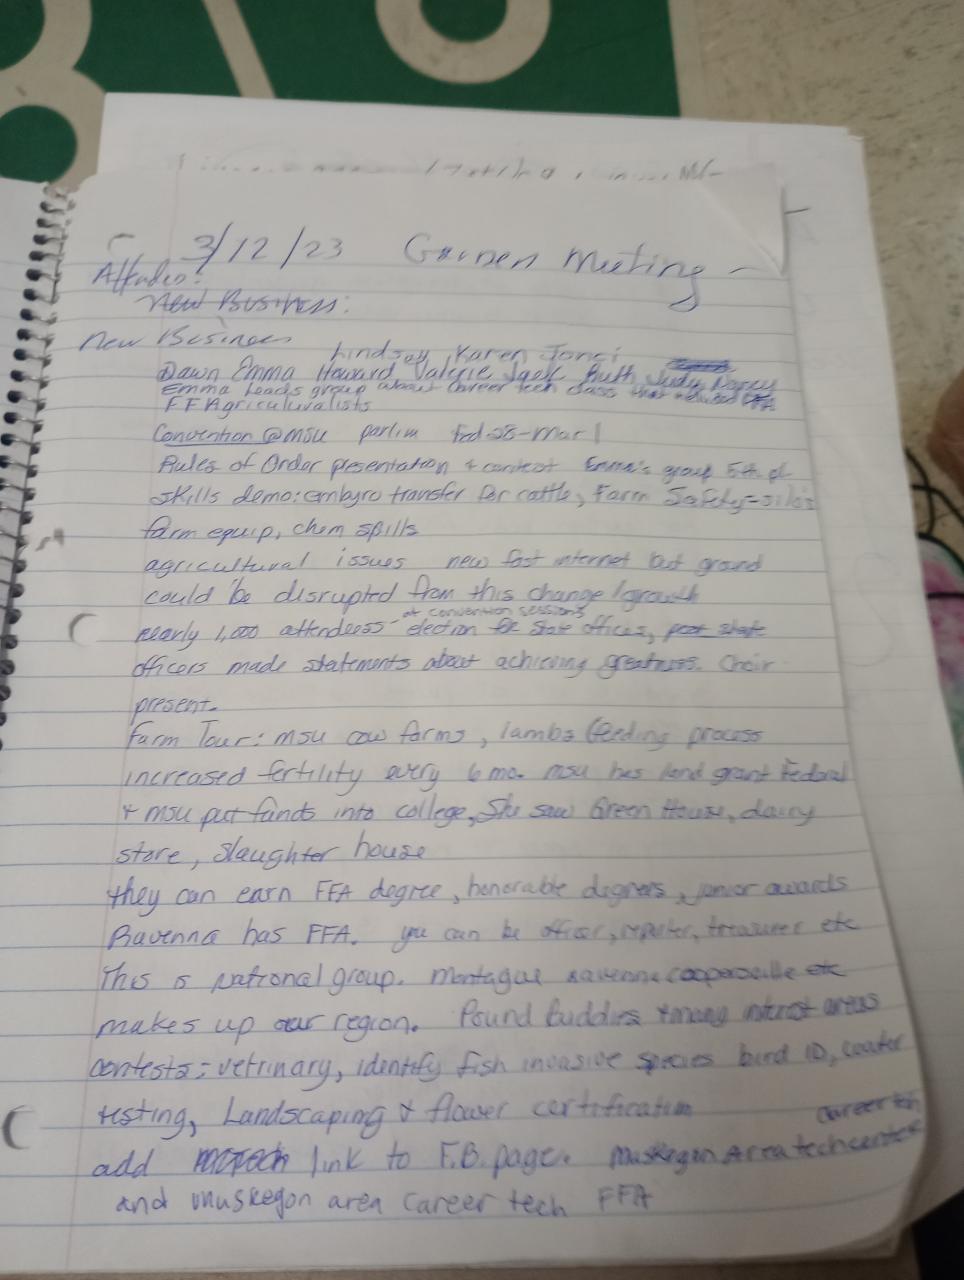 3/12/23 Garden Meeting -
Attendees:
New Business:
New Business
Lindsay, Karen Jones
Dawn Emma Howard Valerie Jack Ruth Judy Nancy
Emma leads group about career tech class that
FFAgriculuralists
Convention @msu parlim Feb 28-Mar 1
Rules of Order presentation + contest Emma's group 5th pl
skills demo: embyro transfer for cattle, Farm Safety-silos
farm equip, chem spills
agricultural issues new fast internet but ground
could be disrupted from this change/growth
at convention sessions
nearly 1,000 attendees- election for state offices, past state
officers made statements about achieving greatness. Choir
present.
Farm Tour: msu cow farms, lambs feeding process
increased fertility every 6 mo. msu has land grant Federal
+ msu put funds into college, She saw Green House, dairy
store, slaughter house
they can earn FFA degree, honorable degrees, junior awards
Ravenna has FFA. you can be officer, reporter, treasurer etc
This is national group. Montague ravenna coopersville etc
makes up our region. Pound buddies + many interest areas
contests: vetrinary, identify fish invasive species bird ID, water
testing, Landscaping & flower certification
career tch
add link to F.B. page. Muskegon Area techcenter
and muskegon area career tech FFA